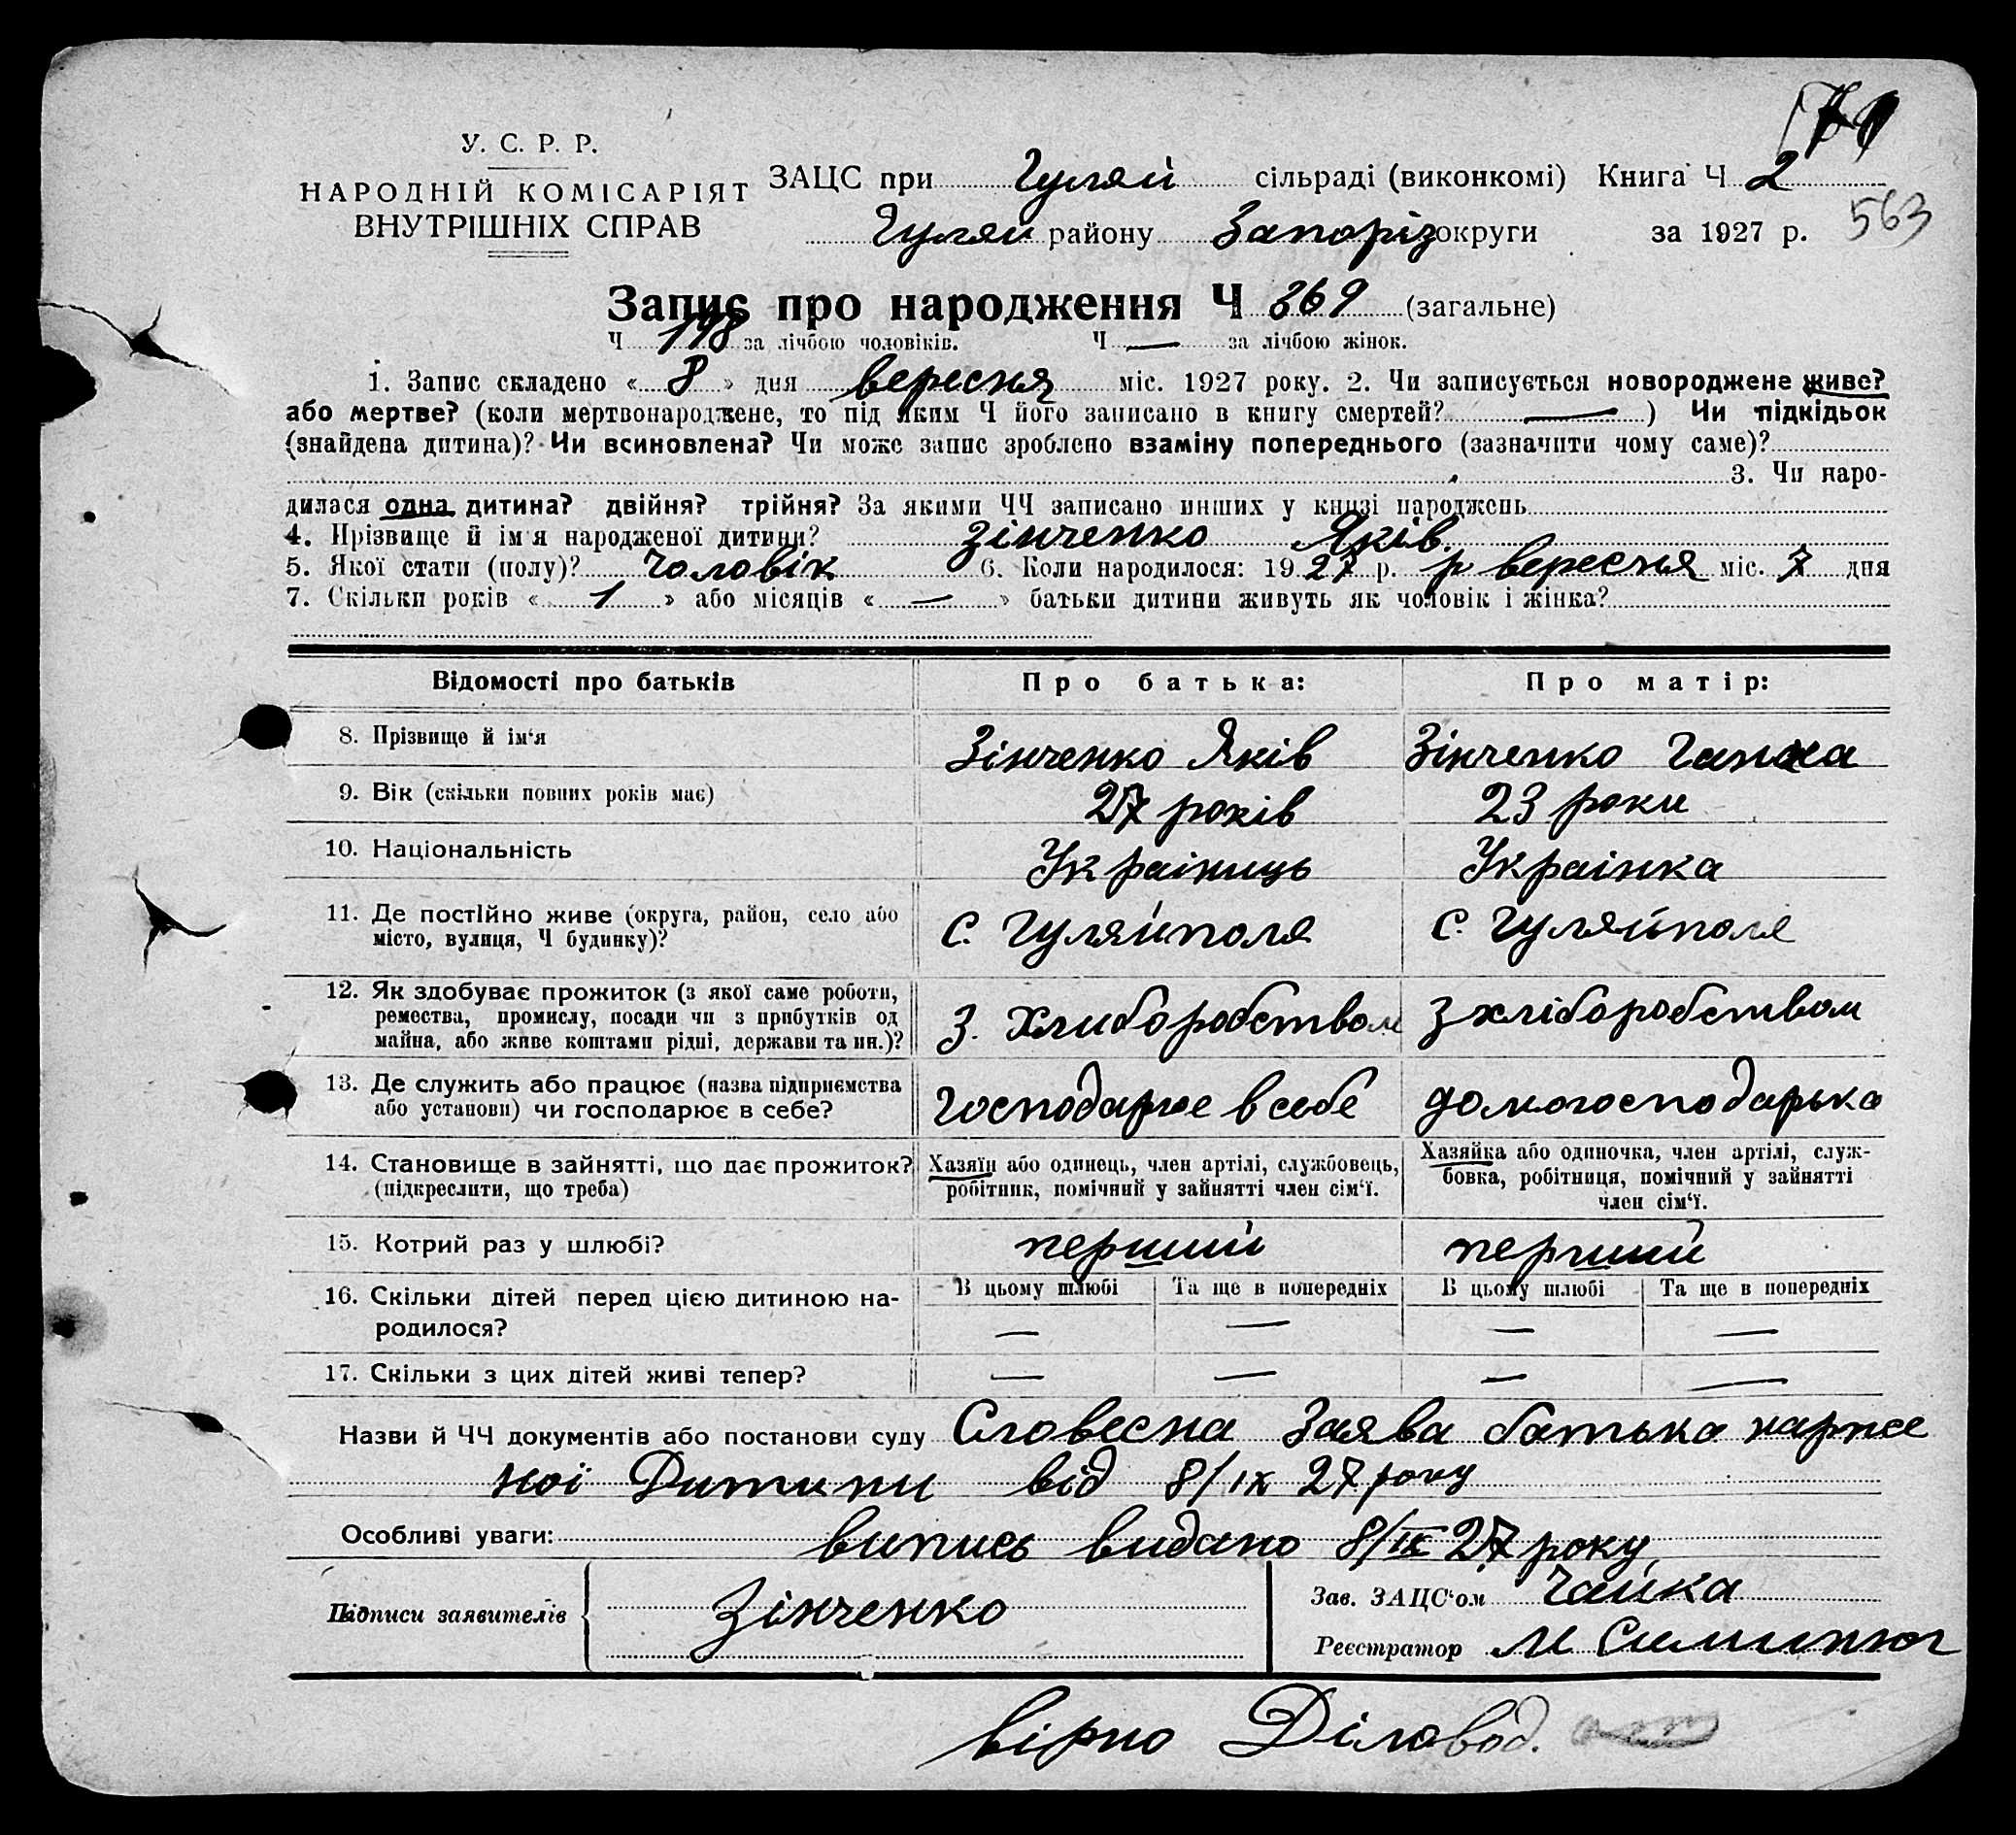 У. С. Р. Р.
НАРОДНІЙ КОМІСАРІЯТ
ВНУТРІШНІХ СПРАВ
ЗАЦС при Гуляй сільраді (виконкомі) Книга Ч 2
Гуляй району Запоріз округи за 1927 р. 563
Запис про народження Ч 369 (загальне)
Ч 198 за лічбою чоловіків. Ч — за лічбою жінок.
1. Запис складено « 8 » дня вересня міс. 1927 року. 2. Чи записується новороджене живе?
або мертве? (коли мертвонароджене, то під яким Ч його записано в книгу смертей? — ) Чи підкідьок
(знайдена дитина)? Чи всиновлена? Чи може запис зроблено взаміну попереднього (зазначити чому саме)?
3. Чи наро-
дилася одна дитина? двійня? трійня? За якими ЧЧ записано инших у книзі народжень
4. Прізвище й ім'я народженої дитини? Зінченко Яків.
5. Якої стати (полу)? Чоловік 6. Коли народилося: 19 27 р. р вересня міс. 7 дня
7. Скільки років « 1 » або місяців « — » батьки дитини живуть як чоловік і жінка?
Відомості про батьків Про батька: Про матір:
8. Прізвище й ім'я Зінченко Яків Зінченко Ганна
9. Вік (скільки повних років має) 27 років 23 роки
10. Національність Украіниць Украінка
11. Де постійно живе (округа, район, село або
місто, вулиця, Ч будинку)? С. Гуляйполя С. Гуляйполя
12. Як здобуває прожиток (з якої саме роботи,
ремества, промислу, посади чи з прибутків од
майна, або живе коштами рідні, держави та ин.)? З. Хлиборобством З хліборобством
13. Де служить або працює (назва підприємства
або установи) чи господарює в себе? Господарює в себе домогосподарька
14. Становище в зайнятті, що дає прожиток?
(підкреслити, що треба)
Хазяїн або одинець, член артілі, службовець,
робітник, помічний у зайнятті член сім'ї.
Хазяйка або одиночка, член артілі, служ-
бовка, робітниця, помічний у зайнятті
член сім'ї.
15. Котрий раз у шлюбі? перший перший
16. Скільки дітей перед цією дитиною на-
родилося?
В цьому шлюбі Та ще в попередніх В цьому шлюбі Та ще в попередніх
— — — —
17. Скільки з цих дітей живі тепер? — — — —
Назви й ЧЧ документів або постанови суду Словесна Заява батька нарже
ноі Дитини від 8/ІХ 27 року
Особливі уваги: випись видано 8/ІХ 27 року
Підписи заявителів Зінченко
Зав. ЗАЦС'ом Чайка
Реєстратор М
вірно Діловод.